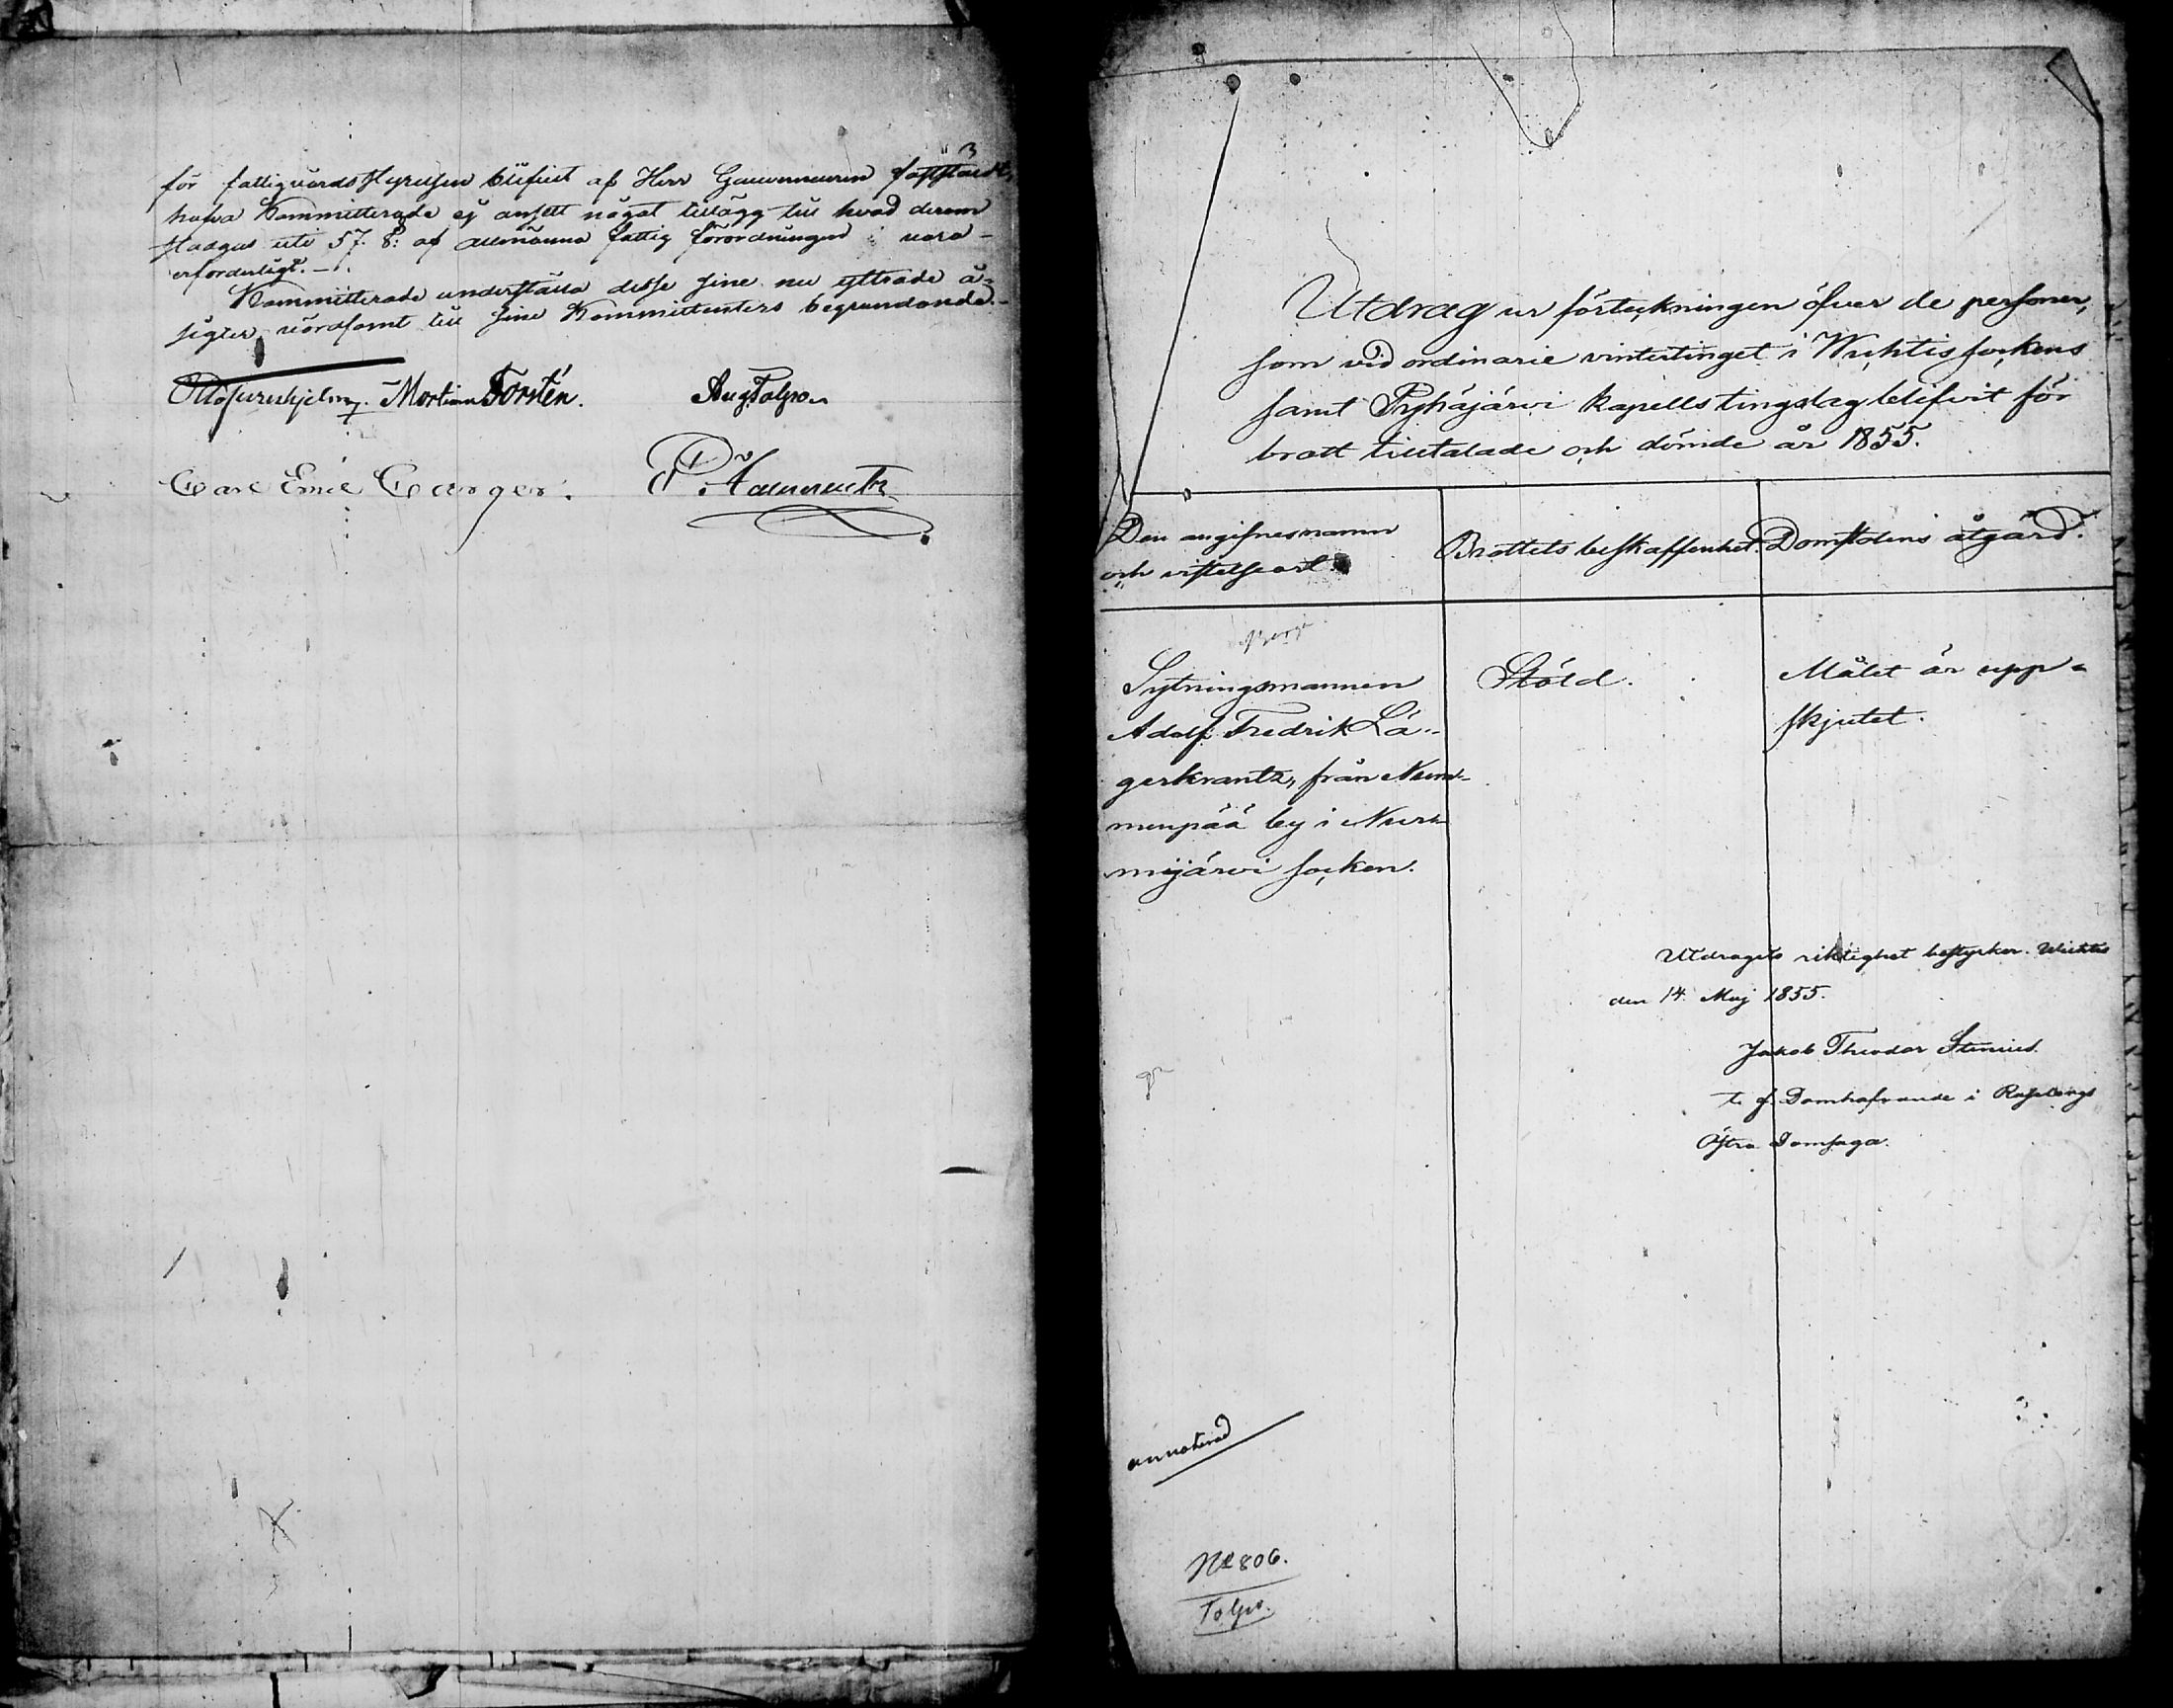 för fattigvårdsstyrelsen blifvit af Herr Gouverneuren faststäldt,
hafva Kommitterade ej ansett något tillägg till hvad derom
stadgas uti 57. §: af allmänna fattig förordningen vara
erforderligt.
Kommitterade underställa desse sine nu yttrade å-
sigter vördsamt till sine Kommittenters begrundande.
Otto Furuhjelm. Martin Forstén. Aug Tolpo
Carl Emil
Utdrag ur förteckningen öfver de personer,
som vid ordinarie vintertinget i Wichtis sockens
samt Pyhäjärvi kapells tingslag blifvit för
brott tilltalade och dömde år 1855.
Den angifnes namn
och vistelseort
Brottets beskaffenhet.
Domstolens åtgärd.
Sytningsmannen
Adolf Fredrik Lä-
gerkrantz, från Num-
menpää by i Nur-
mijärvi socken.
Stöld.
Målet är upp-
skjutet.
Utdragets riktighet bestyrker. Wichtis
den 14 Maj 1855.
Jakob Theodor Stenius.
t. f. Domhafvande i Raseborgs
Östra Domsaga.
annoterad
No 806.
Tolpo.